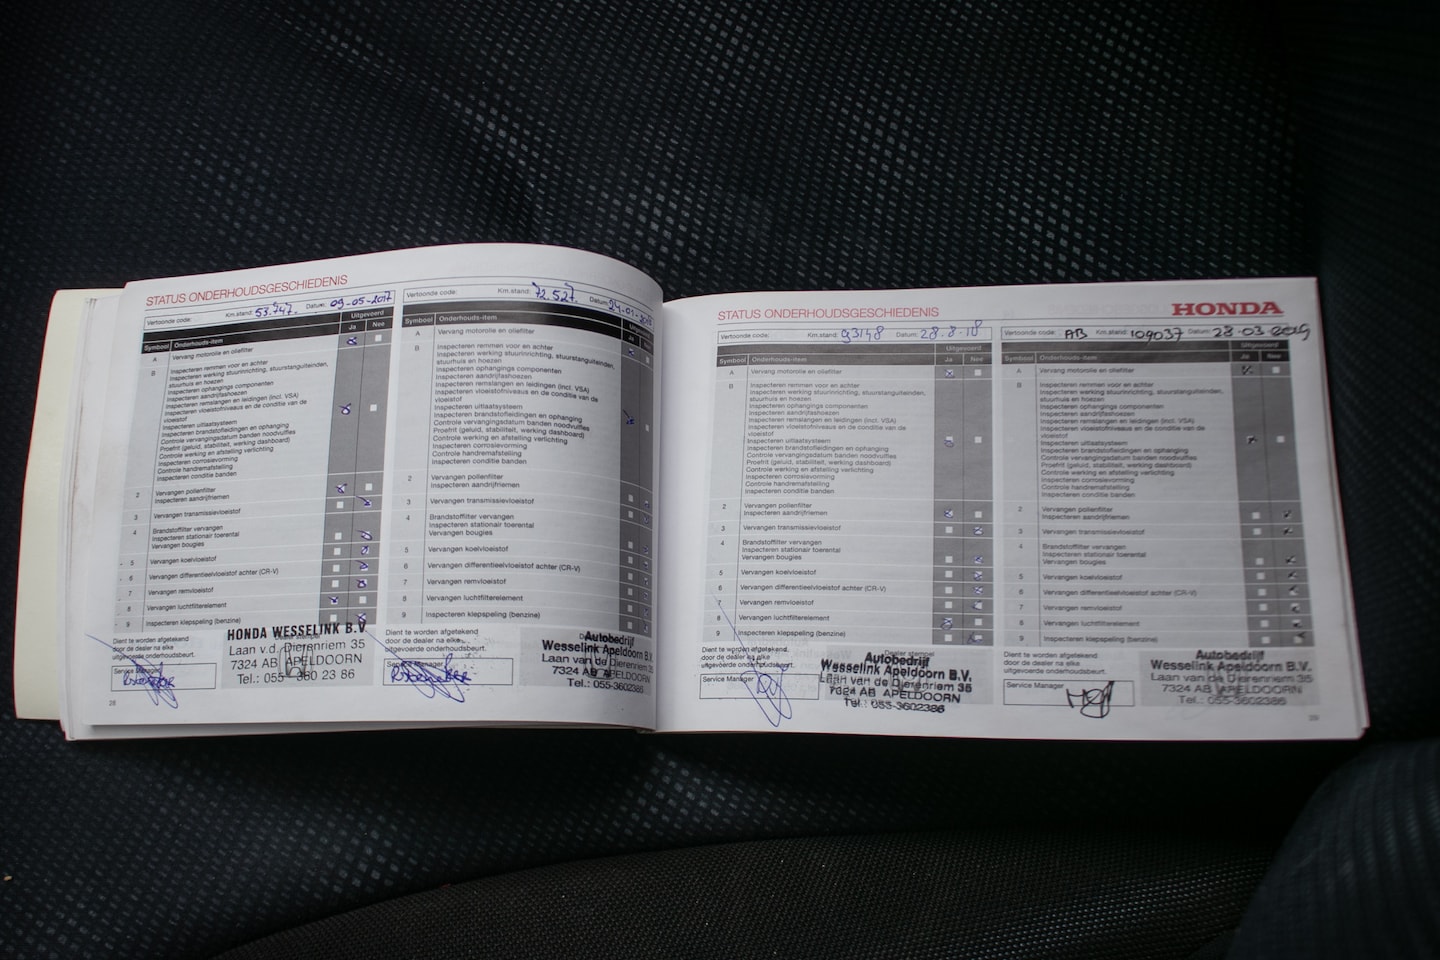 STATUS ONDERHOUDSGESCHIEDENIS
Vertoonde code: Km.stand: 53.747. Datum: 09-05-2017
Uitgevoerd
Symbool Onderhouds-item Ja Nee
A Vervang motorolie en oliefilter
B Inspecteren remmen voor en achter
Inspecteren werking stuurinrichting, stuurstangeinden,
stuurhuis en hoezen
Inspecteren ophangings componenten
Inspecteren aandrijfashoezen
Inspecteren remslangen en leidingen (incl. VSA)
Inspecteren vloeistofniveaus en de conditie van de
vloeistof
Inspecteren uitlaatsysteem
Inspecteren brandstofleidingen en ophanging
Controle vervangingsdatum banden noodvulfles
Proefrit (geluid, stabiliteit, werking dashboard)
Controle werking en afstelling verlichting
Inspecteren corrosievorming
Controle handremafstelling
Inspecteren conditie banden
2 Vervangen pollenfilter
Inspecteren aandrijfriemen
3 Vervangen transmissievloeistof
4 Brandstoffilter vervangen
Inspecteren stationair toerental
Vervangen bougies
5 Vervangen koelvloeistof
6 Vervangen differentieelvloeistof achter (CR-V)
7 Vervangen remvloeistof
8 Vervangen luchtfilterelement
9 Inspecteren klepspeling (benzine)
Dient te worden afgetekend
door de dealer na elke
uitgevoerde onderhoudsbeurt.
Service Manager
HONDA WESSELINK B.V.
Laan v.d. Dierenriem 35
7324 AB APELDOORN
Tel.: 055 - 360 23 86
28
Vertoonde code: Km.stand: 72.527. Datum:
Symbool Onderhouds-item Ja
A Vervang motorolie en oliefilter
B Inspecteren remmen voor en achter
Inspecteren werking stuurinrichting, stuurstangeinden,
stuurhuis en hoezen
Inspecteren ophangings componenten
Inspecteren aandrijfashoezen
Inspecteren remslangen en leidingen (incl. VSA)
Inspecteren vloeistofniveaus en de conditie van de
vloeistof
Inspecteren uitlaatsysteem
Inspecteren brandstofleidingen en ophanging
Controle vervangingsdatum banden noodvulfles
Proefrit (geluid, stabiliteit, werking dashboard)
Controle werking en afstelling verlichting
Inspecteren corrosievorming
Controle handremafstelling
Inspecteren conditie banden
2 Vervangen pollenfilter
Inspecteren aandrijfriemen
3 Vervangen transmissievloeistof
4 Brandstoffilter vervangen
Inspecteren stationair toerental
Vervangen bougies
5 Vervangen koelvloeistof
6 Vervangen differentieelvloeistof achter (CR-V)
7 Vervangen remvloeistof
8 Vervangen luchtfilterelement
9 Inspecteren klepspeling (benzine)
Dient te worden afgetekend
door de dealer na elke
uitgevoerde onderhoudsbeurt.
Service Manager
Autobedrijf
Wesselink Apeldoorn B.V.
Laan van de Dierenriem 35
7324 AB APELDOORN
Tel.: 055-3602386
STATUS ONDERHOUDSGESCHIEDENIS
HONDA
Vertoonde code: Km.stand: 93148 Datum: 28.8.18
Uitgevoerd
Symbool Onderhouds-item Ja Nee
A Vervang motorolie en oliefilter
B Inspecteren remmen voor en achter
Inspecteren werking stuurinrichting, stuurstangeinden,
stuurhuis en hoezen
Inspecteren ophangings componenten
Inspecteren aandrijfashoezen
Inspecteren remslangen en leidingen (incl. VSA)
Inspecteren vloeistofniveaus en de conditie van de
vloeistof
Inspecteren uitlaatsysteem
Inspecteren brandstofleidingen en ophanging
Controle vervangingsdatum banden noodvulfles
Proefrit (geluid, stabiliteit, werking dashboard)
Controle werking en afstelling verlichting
Inspecteren corrosievorming
Controle handremafstelling
Inspecteren conditie banden
2 Vervangen pollenfilter
Inspecteren aandrijfriemen
3 Vervangen transmissievloeistof
4 Brandstoffilter vervangen
Inspecteren stationair toerental
Vervangen bougies
5 Vervangen koelvloeistof
6 Vervangen differentieelvloeistof achter (CR-V)
7 Vervangen remvloeistof
8 Vervangen luchtfilterelement
9 Inspecteren klepspeling (benzine)
Dient te worden afgetekend
door de dealer na elke
uitgevoerde onderhoudsbeurt.
Service Manager
Dealer stempel
Autobedrijf
Wesselink Apeldoorn B.V.
Laan van de Dierenriem 35
7324 AB APELDOORN
Tel.: 055-3602386
Vertoonde code: AB Km.stand: 109037 Datum: 28-03-2019
Uitgevoerd
Symbool Onderhouds-item Ja Nee
A Vervang motorolie en oliefilter
B Inspecteren remmen voor en achter
Inspecteren werking stuurinrichting, stuurstangeinden,
stuurhuis en hoezen
Inspecteren ophangings componenten
Inspecteren aandrijfashoezen
Inspecteren remslangen en leidingen (incl. VSA)
Inspecteren vloeistofniveaus en de conditie van de
vloeistof
Inspecteren uitlaatsysteem
Inspecteren brandstofleidingen en ophanging
Controle vervangingsdatum banden noodvulfles
Proefrit (geluid, stabiliteit, werking dashboard)
Controle werking en afstelling verlichting
Inspecteren corrosievorming
Controle handremafstelling
Inspecteren conditie banden
2 Vervangen pollenfilter
Inspecteren aandrijfriemen
3 Vervangen transmissievloeistof
4 Brandstoffilter vervangen
Inspecteren stationair toerental
Vervangen bougies
5 Vervangen koelvloeistof
6 Vervangen differentieelvloeistof achter (CR-V)
7 Vervangen remvloeistof
8 Vervangen luchtfilterelement
9 Inspecteren klepspeling (benzine)
Dient te worden afgetekend
door de dealer na elke
uitgevoerde onderhoudsbeurt.
Service Manager
Autobedrijf
Wesselink Apeldoorn B.V.
Laan van de Dierenriem 35
7324 AB APELDOORN
Tel.: 055-3602386